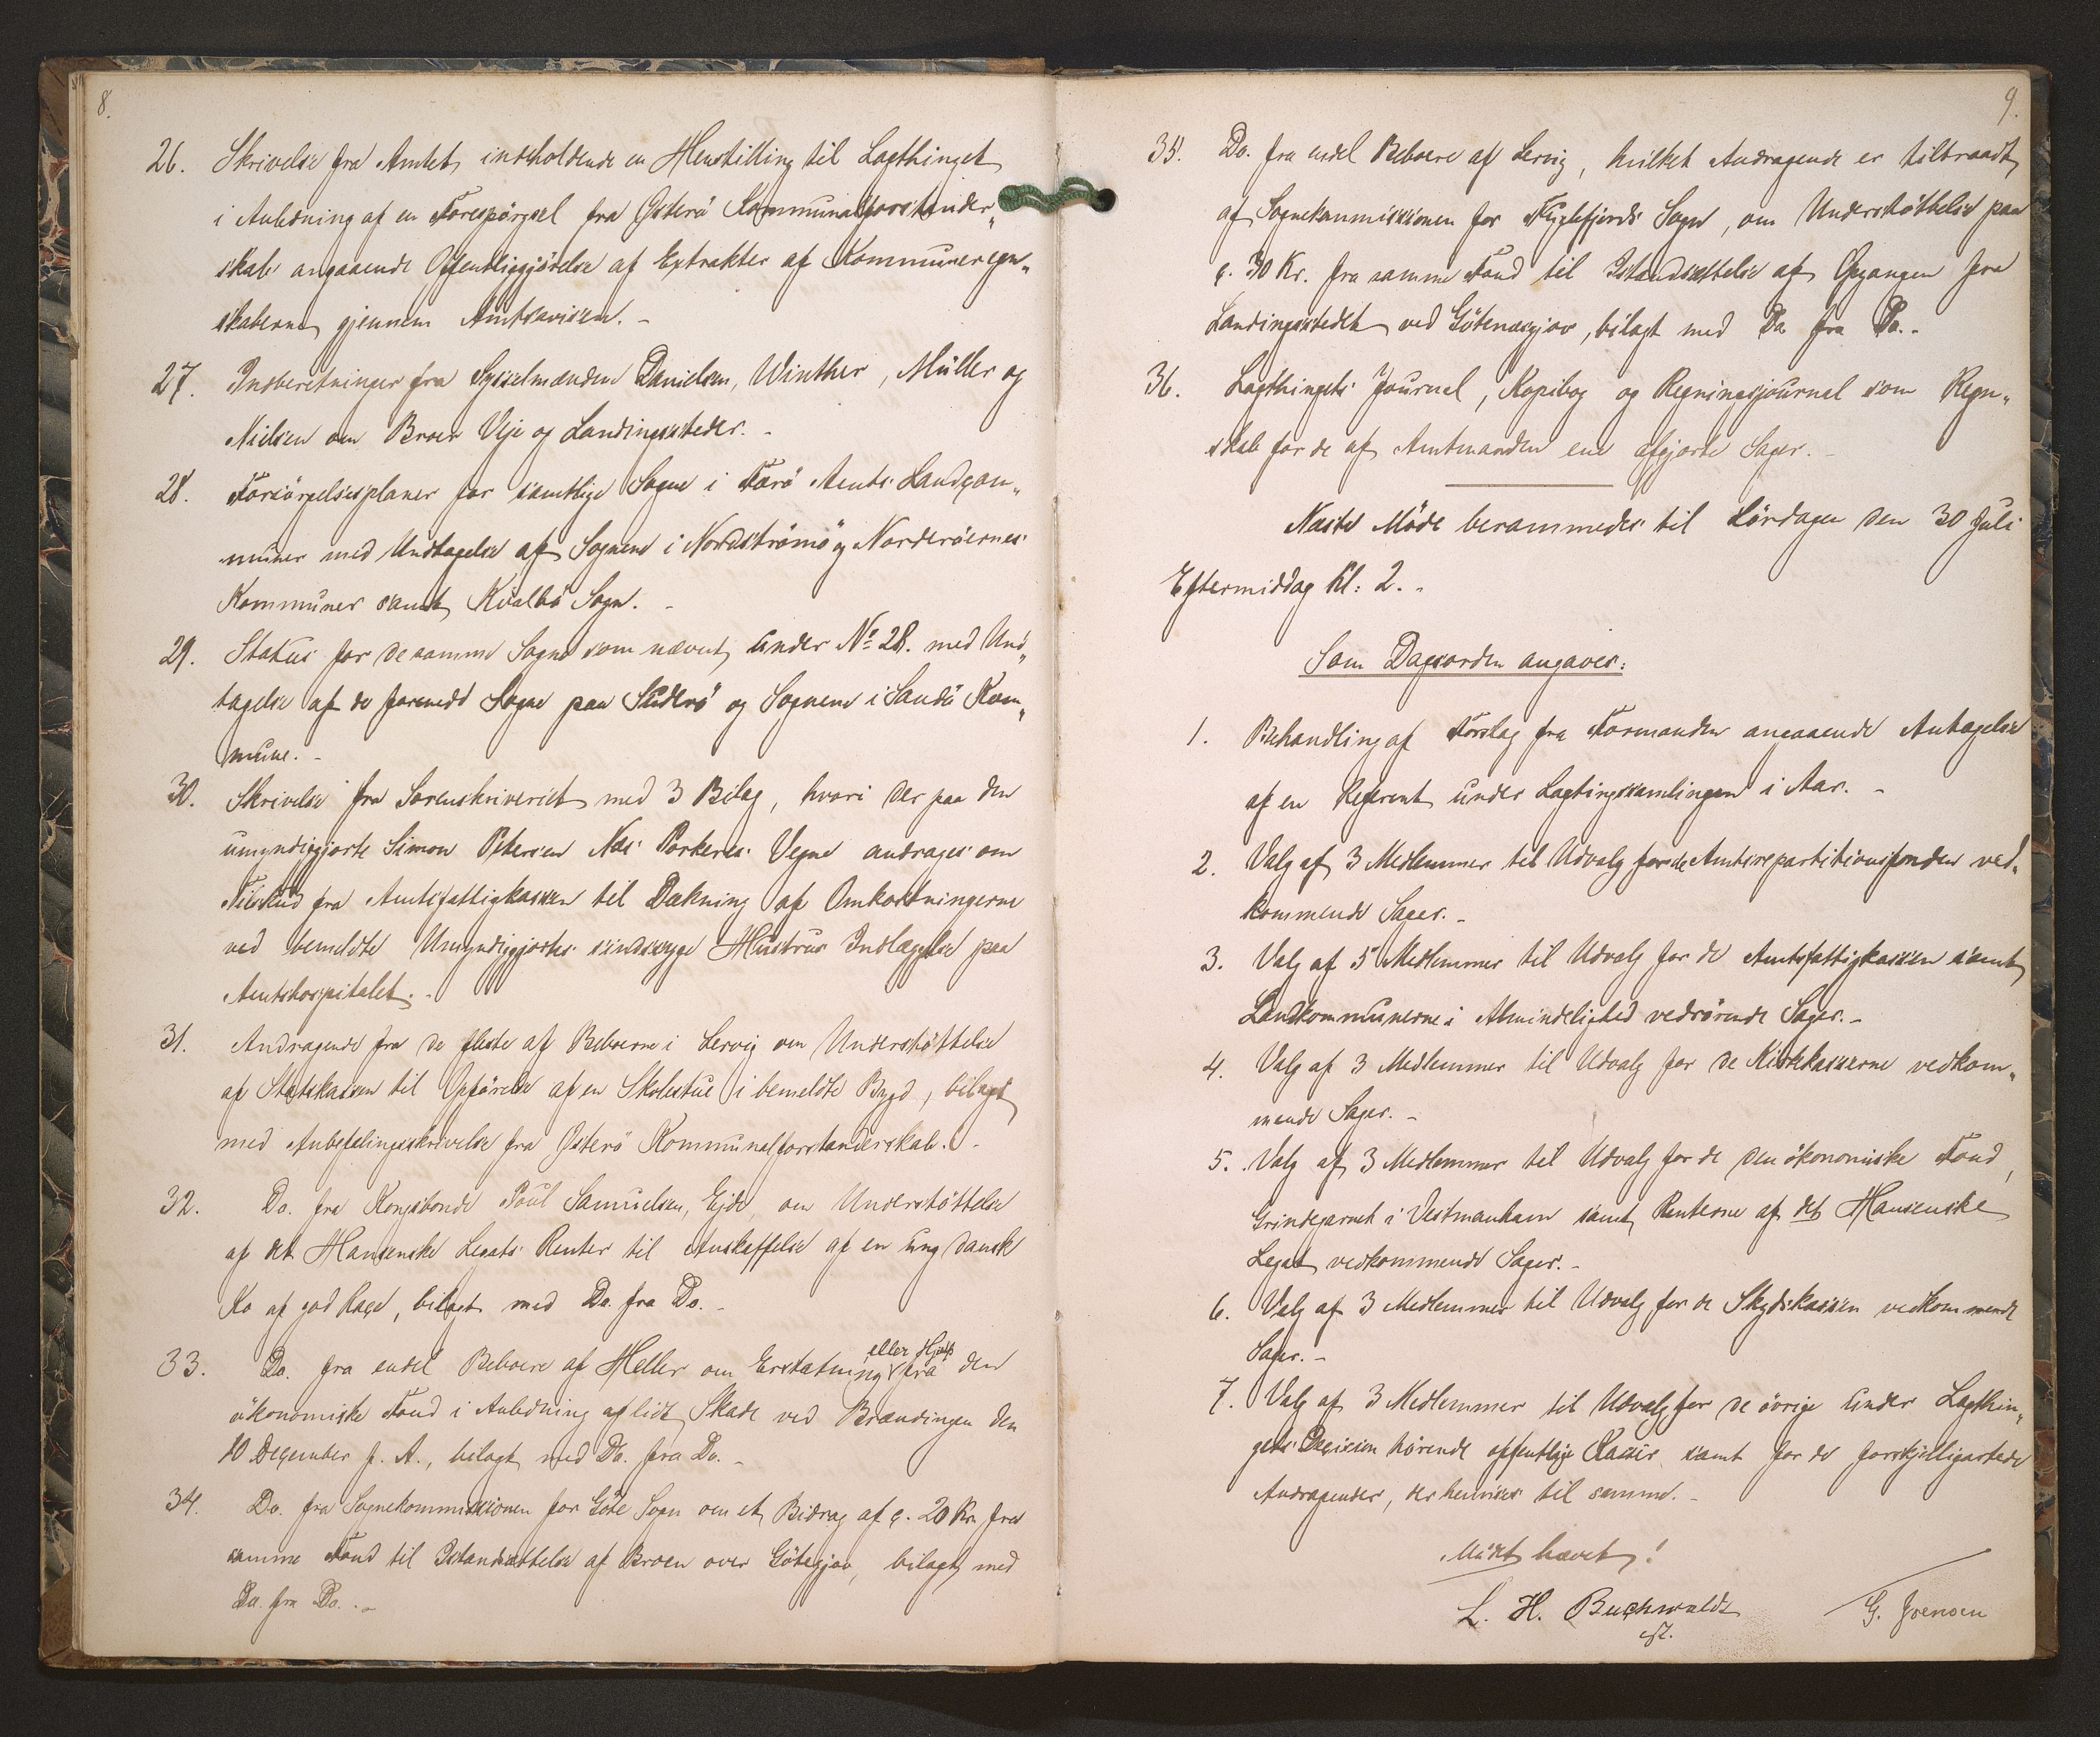 8.
26. Skrivelse fra Amtet, indeholdende en Henstilling til Lagthinget
i Anledning af en Forespörgsel fra Österö Kommunalforstander„
skab angaaende Offentliggjörelse af Extrakter af Kommuneregn„
skaberne gjennem Amtsavisen. –
27. Indberetninger fra Sysselmændene Danielsen, Winther, Müller og
Nielsen om Broer Veje og Landingssteder. –
28. Forsörgelsesplaner for samtlige Sogne i Færö Amts Landkom„
muner med Undtagelse af Sognene i Nordströmö og Norderöernes
Kommuner samt Kvalbö Sogn. –
29. Status for de samme Sogne som nævnt under No 28. med Und„
tagelse af de forenede Sogne paa Suderö og Sognene i Sandö Kom„
mune. –
30. Skrivelse fra Sorenskriveriet med 3 Bilag, hvori der paa den
umyndiggjorte Simon Petersen Næs Porkeres Vegne andrages om
Tilskud fra Amtsfattigkassen til Dækning af Omkostningerne
ved bemeldte Umyndiggjortes sindssyge Hustrus Indlæggelse paa
Amtshospitalet. –
31. Andragende fra de fleste af Beboerne i Lervig om Understöttelse
af Statskassen til Opförelse af en Skolestue i bemeldte Bygd, bilagt
med Anbefalingsskrivelse fra Österö Kommunalforstanderskab. –
32. Do. fra Kongsbonde Poul Samuelsen, Ejde, om Understöttelse
af det Hansenske Legats Renter til Anskaffelse af en ung dansk
Ko af god Race, bilagt med Do. fra Do. –
33. Do. fra endel Beboere af Heller om Erstatning eller Hjælp fra den
ökonomiske Fond i Anledning af lidt Skade ved Brændingen den
10 December f. A., bilagt med Do. fra Do. –
34. Do. fra Sognekommissionen for Göte Sogn om et Bidrag af c. 20 Kr. fra
samme Fond til Istandsættelse af Broen over Götegjov, bilagt med
Do. fra Do. . –
9.
35. Do. fra endel Beboere af Lervig, hvilket Andragende er tiltraadt
af Sognekommissionen for Fuglefjords Sogn, om Understöttelse paa
c. 30 Kr. fra samme Fond til Istandsættelse af Opgangen fra
Landingsstedet ved Götenæsgjov, bilagt med Do fra Do. –
36. Lagthingets Journal, Kopibog og Regningsjournal som Regn„
skab for de af Amtmanden ene afgjorte Sager. –
Næste Möde berammedes til Lördagen den 30 Juli
Eftermiddag Kl: 2. –
Som Dagsorden angaves:
1. Behandling af Forslag fra Formanden angaaende Antagelse
af en Referent under Lagtingssamlingen i Aar. –
2. Valg af 3 Medlemmer til Udvalg for de Amtsrepartitionsfonden ved„
kommende Sager. –
3. Valg af 5 Medlemmer til Udvalg for de Amtsfattigkassen samt
Landkommunerne i Almindelighed vedrörende Sager. –
4. Valg af 3 Medlemmer til Udvalg for de Kirkekasserne vedkom„
mende Sager. –
5. Valg af 3 Medlemmer til Udvalg for de den ökonomiske Fond,
Grindegarnet i Vestmanhavn samt Renterne af det Hansenske
Legat vedkommende Sager. –
6. Valg af 3 Medlemmer til Udvalg for de Skydskassen vedkommende
Sager. –
7. Valg af 3 Medlemmer til Udvalg for de övrige under Lagthin„
gets Decision hörende offentlige Kasser samt for de forskjelligartede
Andragender, der henvises til samme. –
Mödet hævet!
L. H. Buchwaldt
cst.
G. Joensen